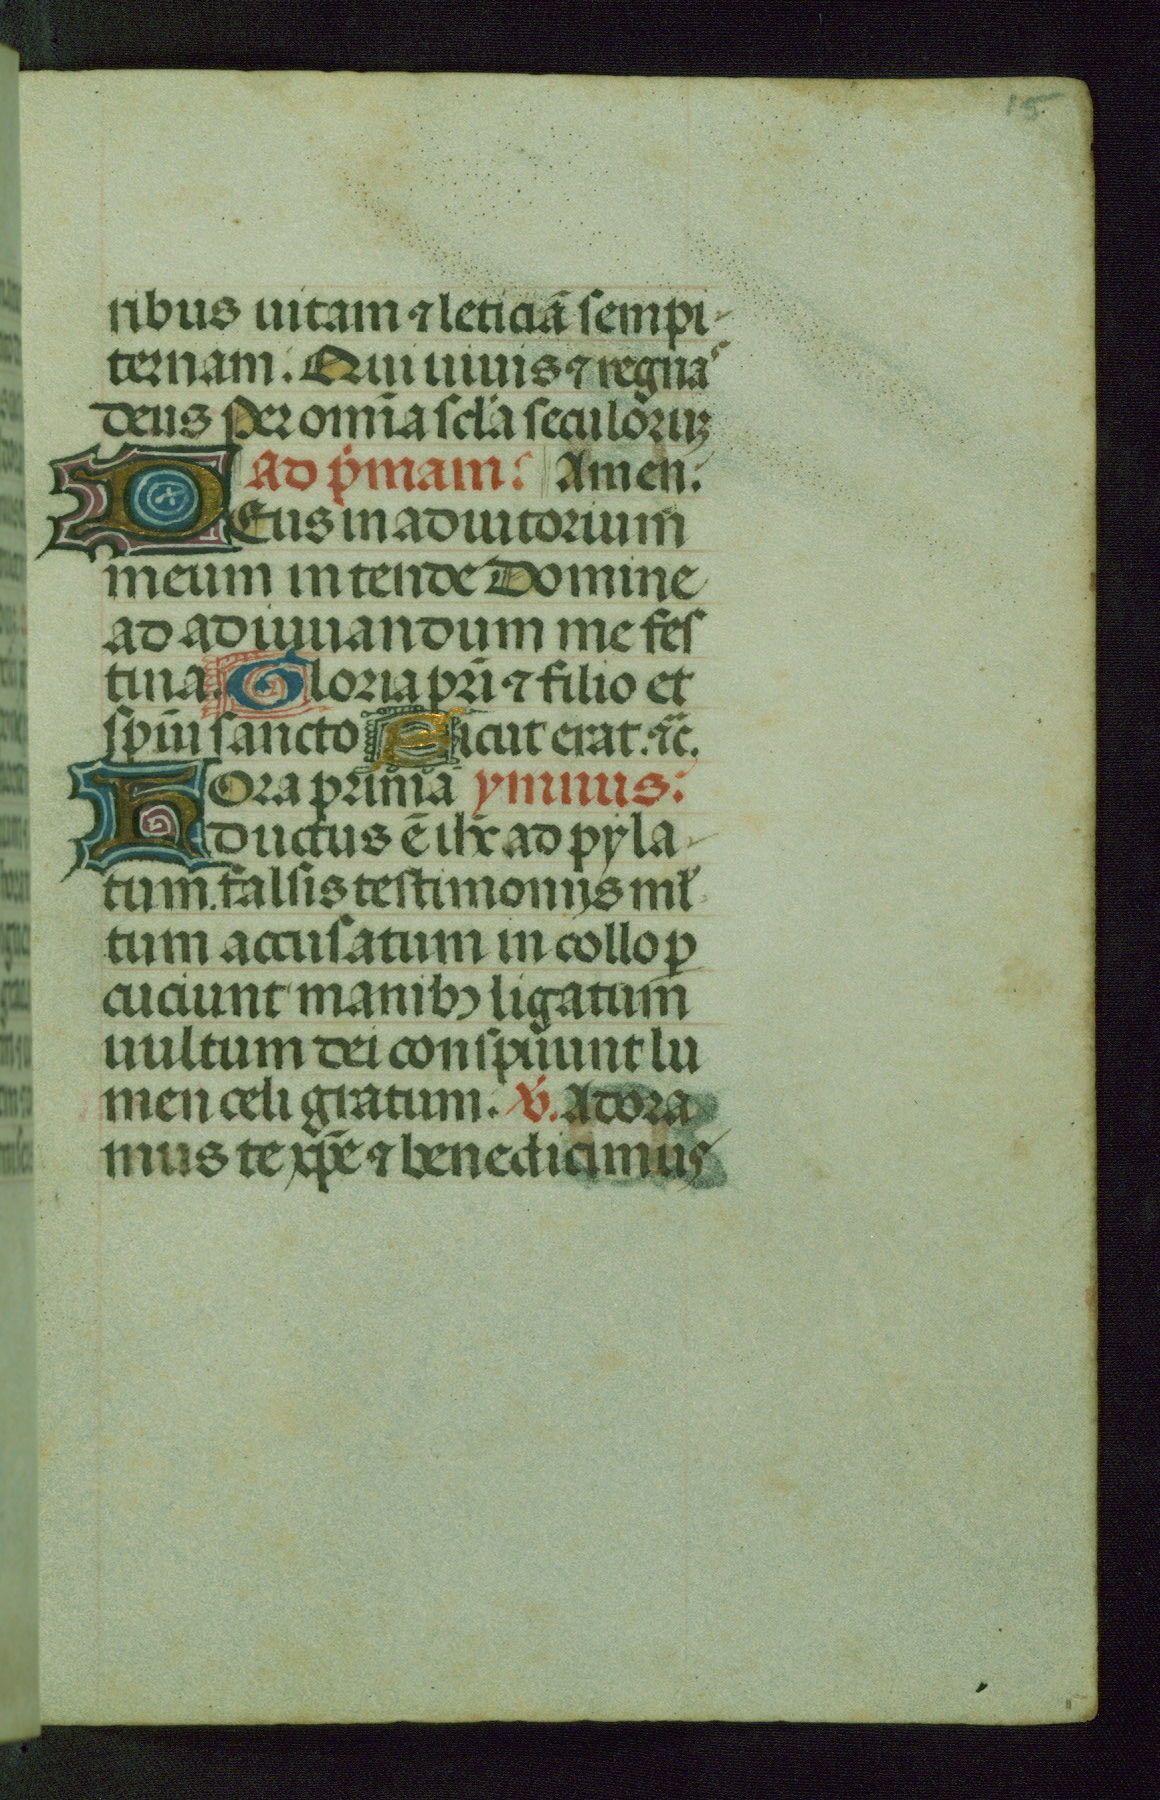 15
ribus uitam ⁊ leticiā sempi-
ternam. Qui uiuis ⁊ regnas
deus per om̄ia scl̄a seculorum
Ad p̄mam: Amen:
DEus in adiutorium
meum intende Domine
ad adiuuandum me fes
tina. Gloria pr̄i ⁊ filio et
sp̄ui sancto Sicut erat. ⁊c̄.
HOra primā ymnus:
ductus ē ihs̄ ad pyla-
tum. falsis testimoniis ml̄
tum accusatum in collo p
cuciunt manibꝫ ligatum
uultum dei conspuunt lu
men celi gratum. V̄. Adora
mus te xp̄e ⁊ benedicimus